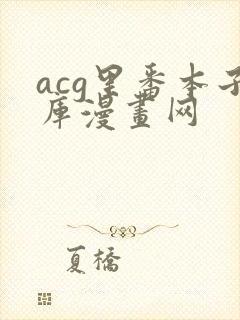 acg里番本子
库漫画网
夏橋